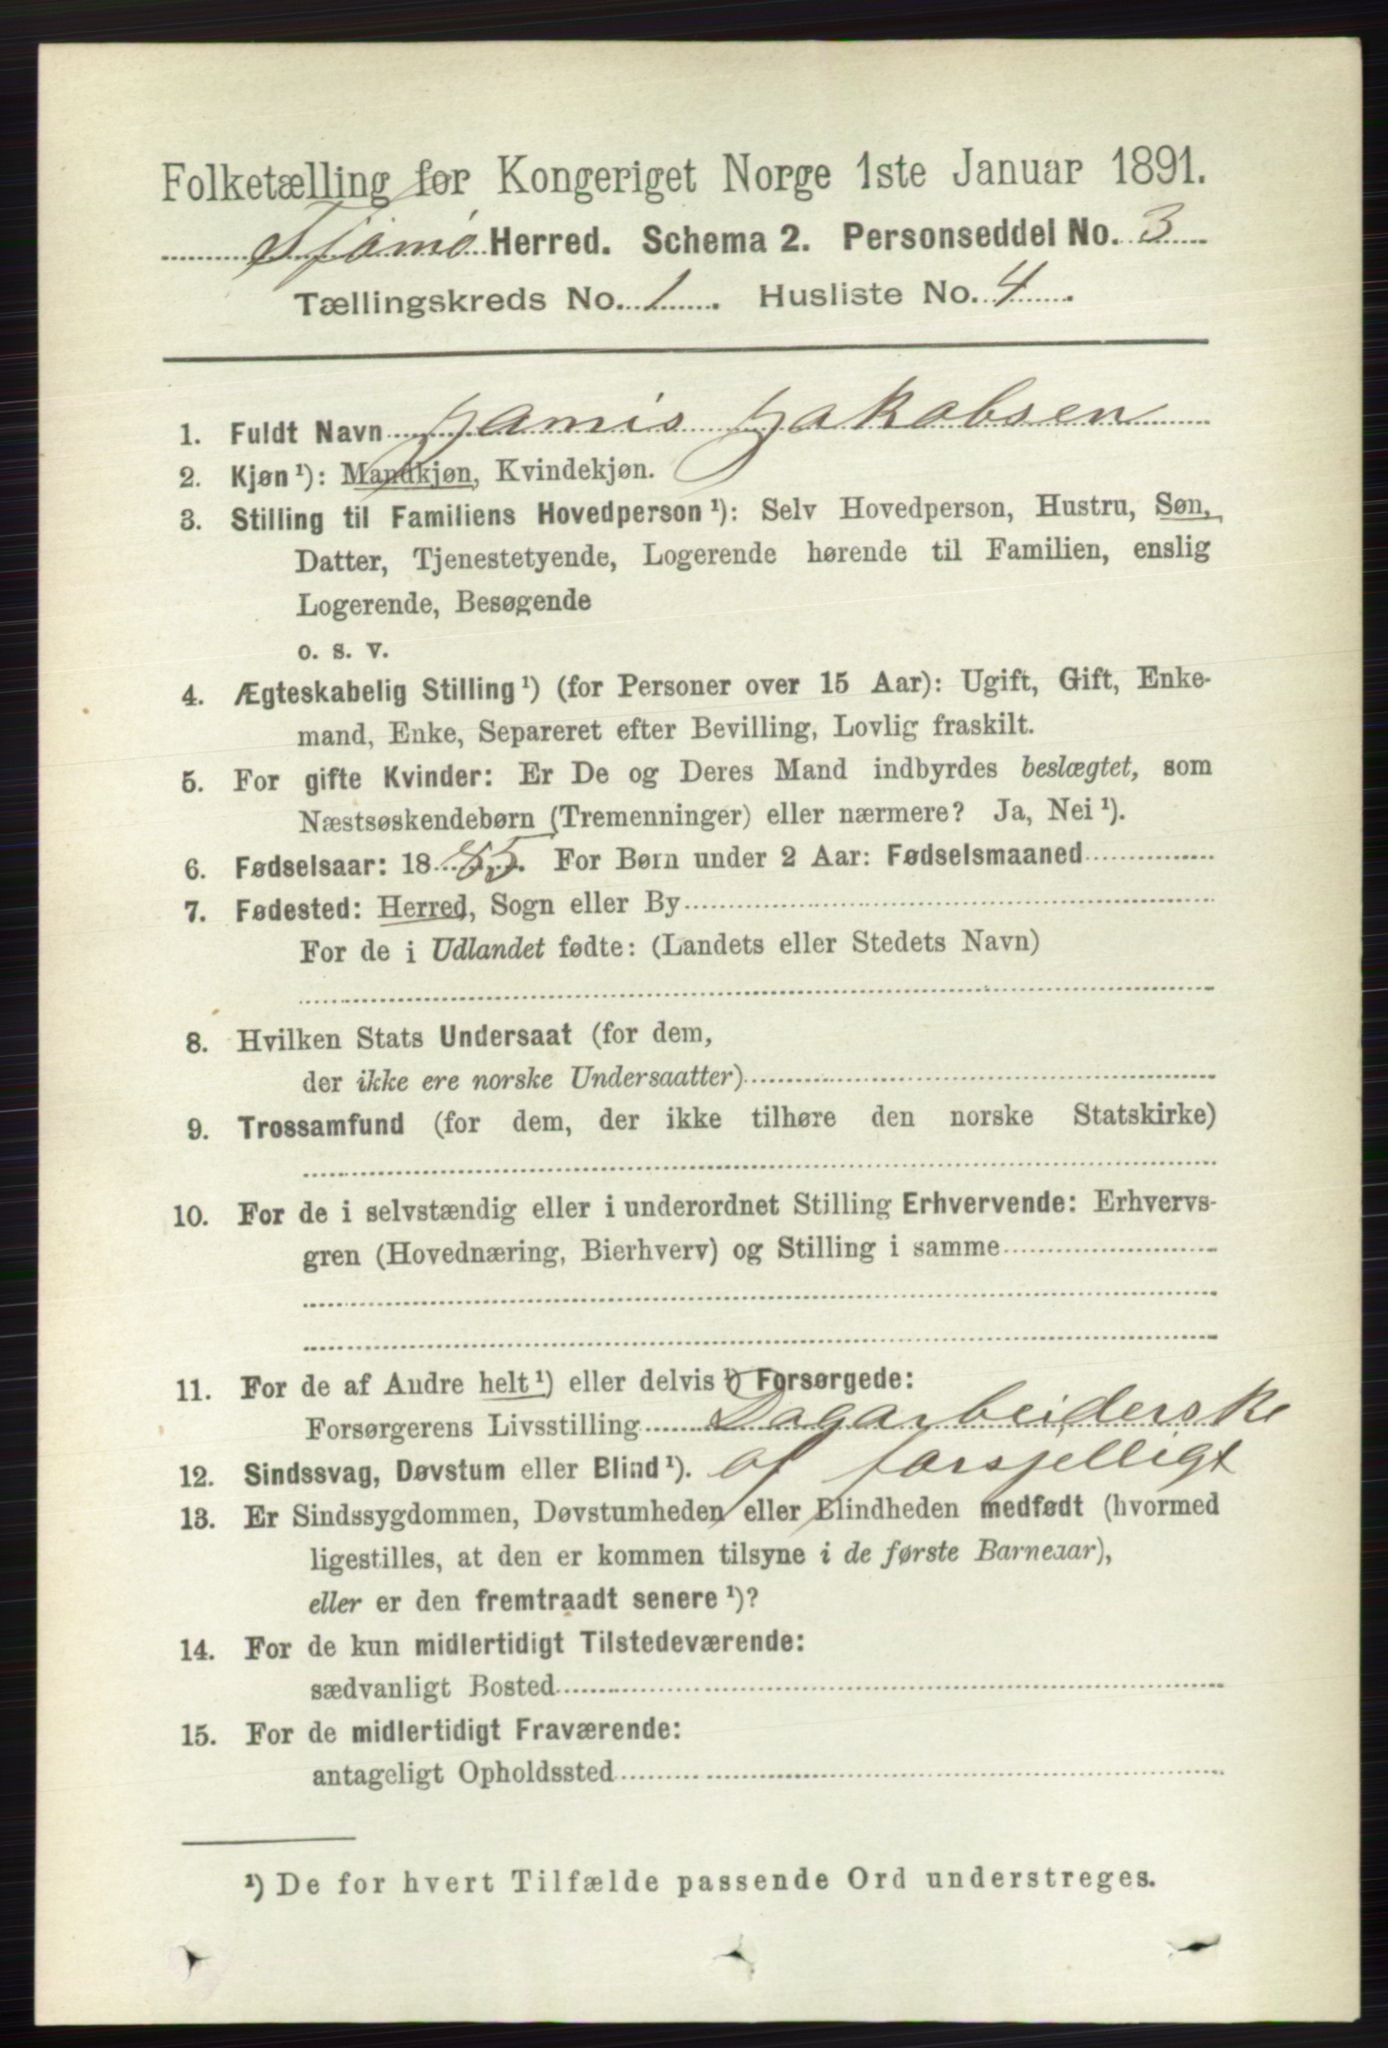 Folketælling for Kongeriget Norge 1ste Januar 1891.
Tjømø Herred. Schema 2. Personseddel No. 3
Tællingskreds No. 1. Husliste No. 4.
1. Fuldt Navn Jamis Jakobsen
2. Kjøn ¹): Mandkjøn, Kvindekjøn.
3. Stilling til Familiens Hovedperson ¹): Selv Hovedperson, Hustru, Søn,
Datter, Tjenestetyende, Logerende hørende til Familien, enslig
Logerende, Besøgende
o. s. v.
4. Ægteskabelig Stilling ¹) (for Personer over 15 Aar): Ugift, Gift, Enke-
mand, Enke, Separeret efter Bevilling, Lovlig fraskilt.
5. For gifte Kvinder: Er De og Deres Mand indbyrdes beslægtet, som
Næstsøskendebørn (Tremenninger) eller nærmere? Ja, Nei ¹).
6. Fødselsaar: 1885. For Børn under 2 Aar: Fødselsmaaned
7. Fødested: Herred, Sogn eller By
For de i Udlandet fødte: (Landets eller Stedets Navn)
8. Hvilken Stats Undersaat (for dem,
der ikke ere norske Undersaatter)
9. Trossamfund (for dem, der ikke tilhøre den norske Statskirke)
10. For de i selvstændig eller i underordnet Stilling Erhvervende: Erhvervs-
gren (Hovednæring, Bierhverv) og Stilling i samme
11. For de af Andre helt ¹) eller delvis ¹) Forsørgede:
Forsørgerens Livsstilling Dagarbeiderske
12. Sindssvag, Døvstum eller Blind ¹). af forsjelligt
13. Er Sindssygdommen, Døvstumheden eller Blindheden medfødt (hvormed
ligestilles, at den er kommen tilsyne i de første Barneaar),
eller er den fremtraadt senere ¹)?
14. For de kun midlertidigt Tilstedeværende:
sædvanligt Bosted
15. For de midlertidigt Fraværende:
antageligt Opholdssted
¹) De for hvert Tilfælde passende Ord understreges.